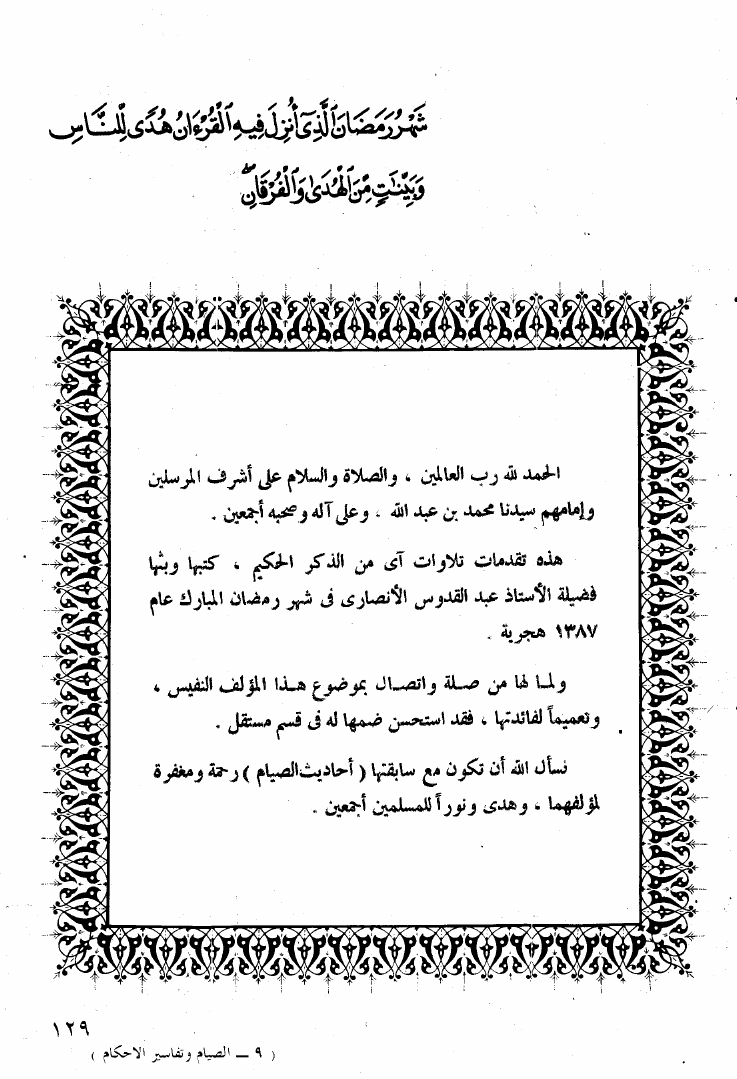 شَهْرُ رَمَضَانَ ٱلَّذِىٓ أُنزِلَ فِيهِ ٱلْقُرْءَانُ هُدًى لِّلنَّاسِ
وَبَيِّنَٰتٍ مِّنَ ٱلْهُدَىٰ وَٱلْفُرْقَانِۖ
الحمد لله رب العالمين ، والصلاة والسلام على أشرف المرسلين
وإمامهم سيدنا محمد بن عبد الله ، وعلى آله وصحبه أجمعين .
هذه تقدمات تلاوات آى من الذكر الحكيم ، كتبها وبثها
فضيلة الأستاذ عبد القدوس الأنصارى فى شهر رمضان المبارك عام
١٣٨٧ هجرية .
ولما لها من صلة واتصال بموضوع هذا المؤلف النفيس ،
وتعميماً لفائدتها ، فقد استحسن ضمها له فى قسم مستقل .
نسأل الله أن تكون مع سابقتها ( أحاديث الصيام ) رحمة ومغفرة
لمؤلفهما ، وهدى ونوراً للمسلمين أجمعين .
١٢٩
( ٩ — الصيام وتفاسير الاحكام )